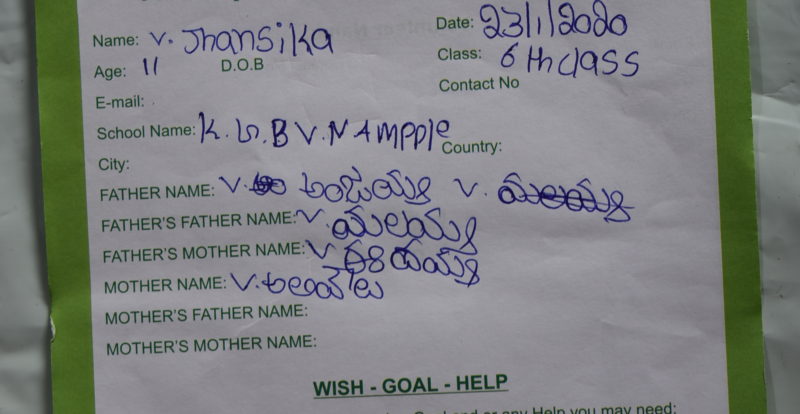 Name: V. Jhansika Date: 23/1/2020
Age: 11 D.O.B Class: 6th class
E-mail: Contact No
School Name: K. G. B V. N AMPPle Country:
City:
FATHER NAME: V. అంజయ్య V.
FATHER'S FATHER NAME: V. మలయ్య
FATHER'S MOTHER NAME: V
MOTHER NAME: V. అలవేలు
MOTHER'S FATHER NAME:
MOTHER'S MOTHER NAME:
WISH - GOAL - HELP
or any Help you may need: